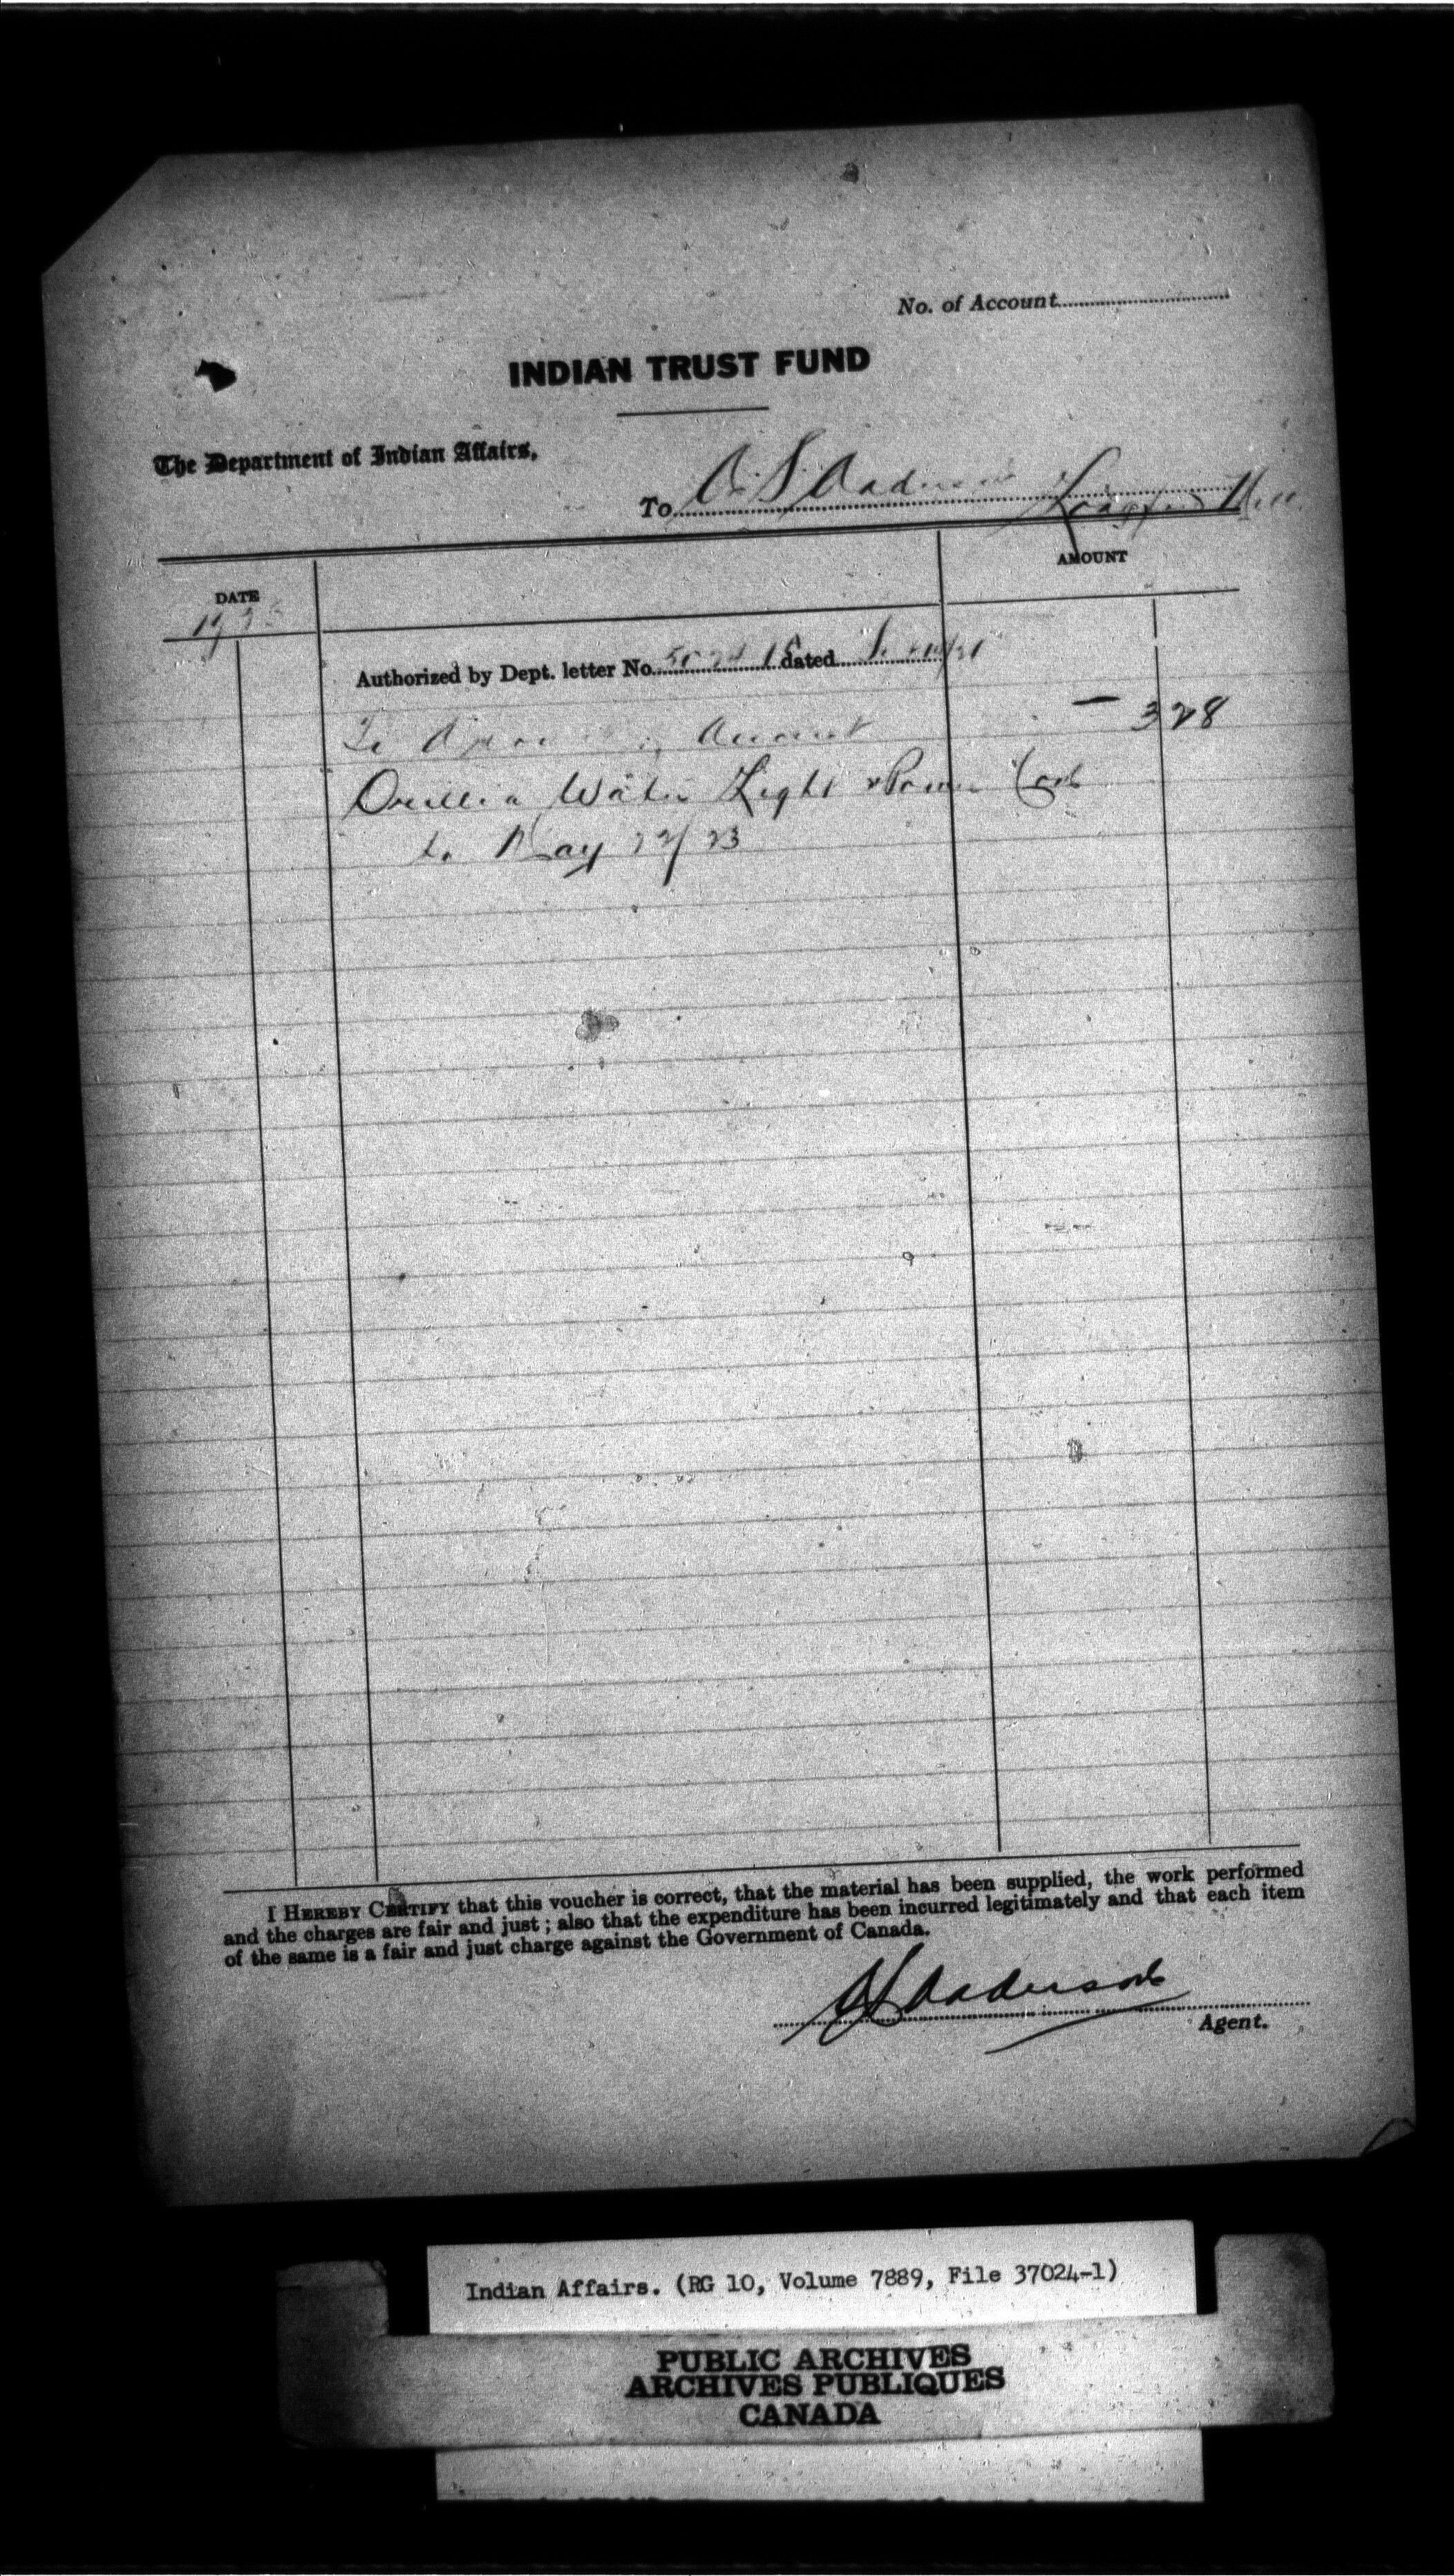 No. of Account
INDIAN TRUST FUND
The Department of Indian Affairs,
To A. S. Anderson
AMOUNT
DATE
Authorized by Dept. letter No. dated
To Account
3 28
Orillia Water Light & Power
to May 22/23
I HEREBY CERTIFY that this voucher is correct, that the material has been supplied, the work performed
and the charges are fair and just; also that the expenditure has been incurred legitimately and that each item
of the same is a fair and just charge against the Government of Canada.
A S Anderson
Agent.
Indian Affairs. (RG 10, Volume 7889, File 37024-1)
PUBLIC ARCHIVES
ARCHIVES PUBLIQUES
CANADA